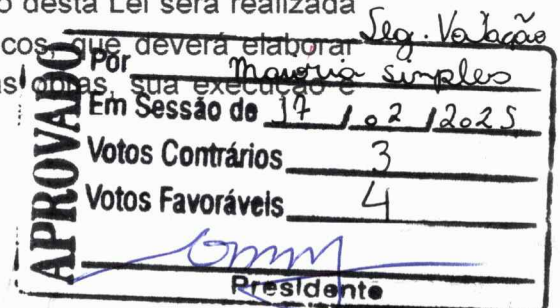 o desta Lei será realizada
Seg. Votação
cos, que deverá elaborar
as obras, sua execução e
APROVADO
Por Maioria simples
Em Sessão de 17 / 02 / 2025
Votos Contrários 3
Votos Favoráveis 4
Presidente